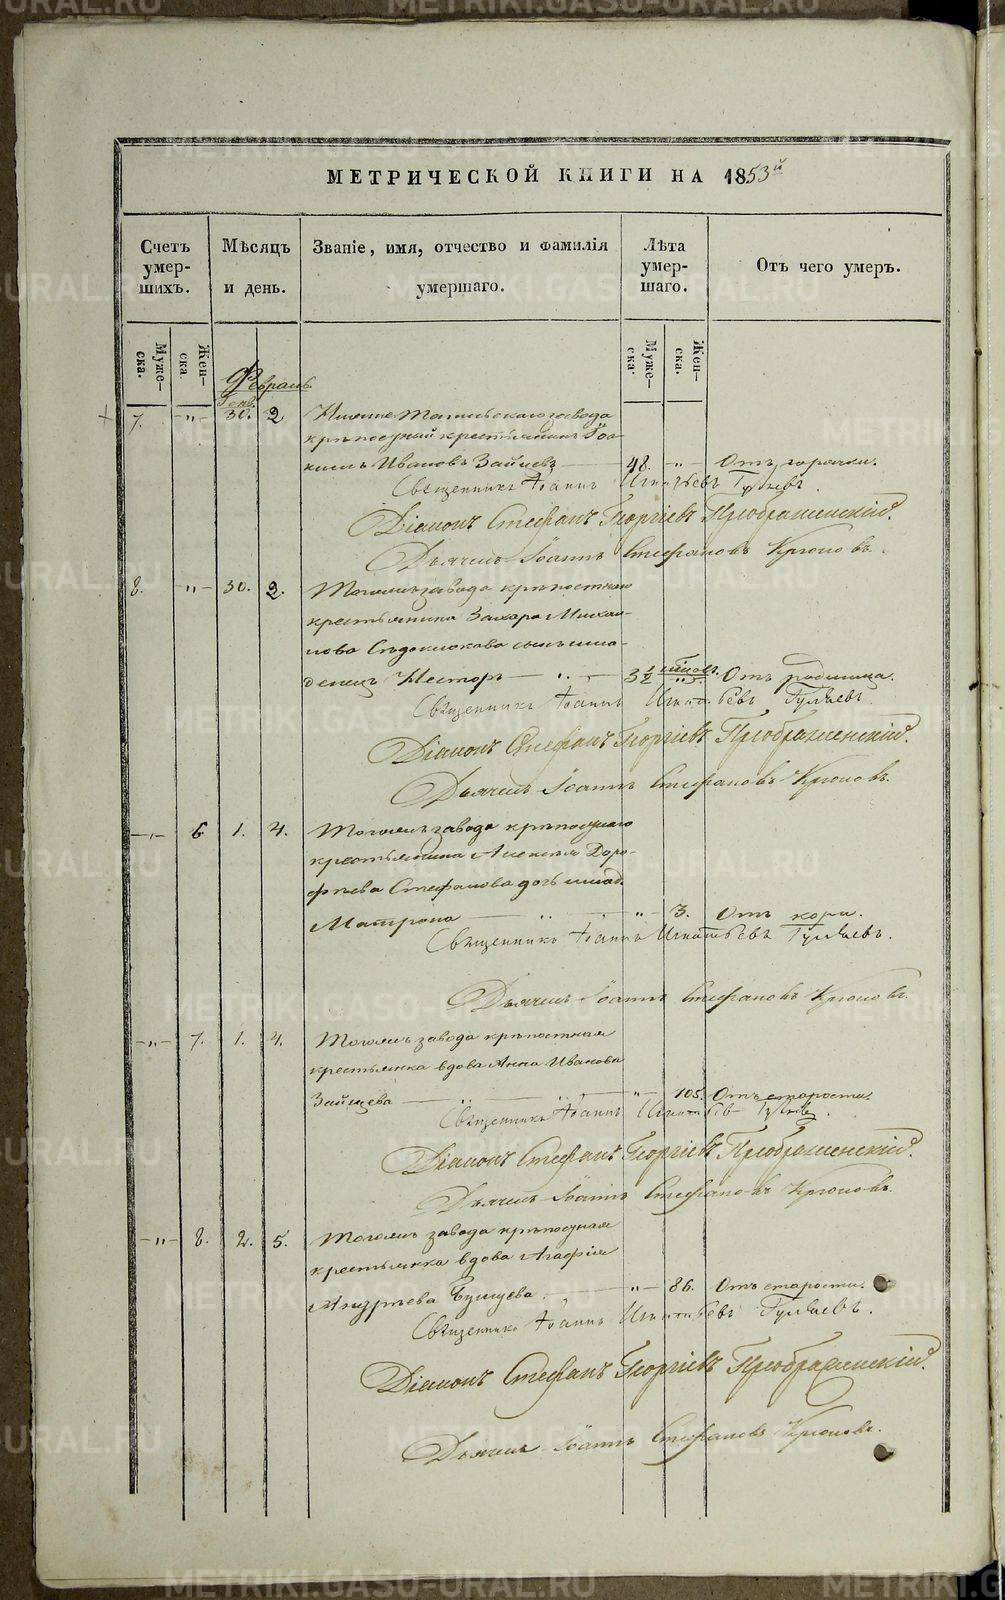 МЕТРИЧЕСКОЙ КНИГИ НА 1853й
Счетъ умер-шихъ.
Мѣсяцъ и день.
Званіе, имя, отчество и фамилія умершаго.
Лѣта умер-шаго.
Отъ чего умеръ.
Муже-ска.
Жен-ска
Муже-ска.
Жен-ска.
Февраль
Генв.
7. -"- 30. 2. Нижне Тагильскаго завода
крѣпостный крестьянинъ Іоа-
кимъ Ивановъ Зайцевъ 48. -"- Отъ горячки.
Священникъ Іоаннъ Игнатьевъ Гуляевъ.
Діаконъ Стефанъ Георгіевъ Преображенскій.
Дьячекъ Іоаннъ Стефановъ Крюковъ.
8. -"- 30. 2. Тогожъ завода крѣпостнаго
крестьянина Захара Михаи-
лова сынъ мла-
денецъ Несторъ 3½ -"- Отъ родимца.
Священникъ Іоаннъ Игнатьевъ Гуляевъ.
Діаконъ Стефанъ Георгіевъ Преображенскій.
Дьячекъ Іоаннъ Стефановъ Крюковъ.
-"- 6 1. 4. Тогожъ завода крѣпостнаго
крестьянина Алексѣя Доро-
фѣева Стефанова дочь млад.
Матрона -"- 3. Отъ кори.
Священникъ Іоаннъ Игнатьевъ Гуляевъ.
Дьячекъ Іоаннъ Стефановъ Крюковъ.
-"- 7. 1. 4. Тогожъ завода крѣпостная
крестьянка вдова Анна Иванова
Зайцева -"- 105. Отъ старости.
Священникъ Іоаннъ Игнатьевъ Гуляевъ.
Діаконъ Стефанъ Георгіевъ Преображенскій.
Дьячекъ Іоаннъ Стефановъ Крюковъ.
-"- 8. 2. 5. Тогожъ завода крѣпостная
крестьянка вдова Агафія
Андрѣева -"- 86. Отъ старости.
Священникъ Іоаннъ Игнатьевъ Гуляевъ.
Діаконъ Стефанъ Георгіевъ Преображенскій.
Дьячекъ Іоаннъ Стефановъ Крюковъ.
METRIKI.GASO-URAL.RU